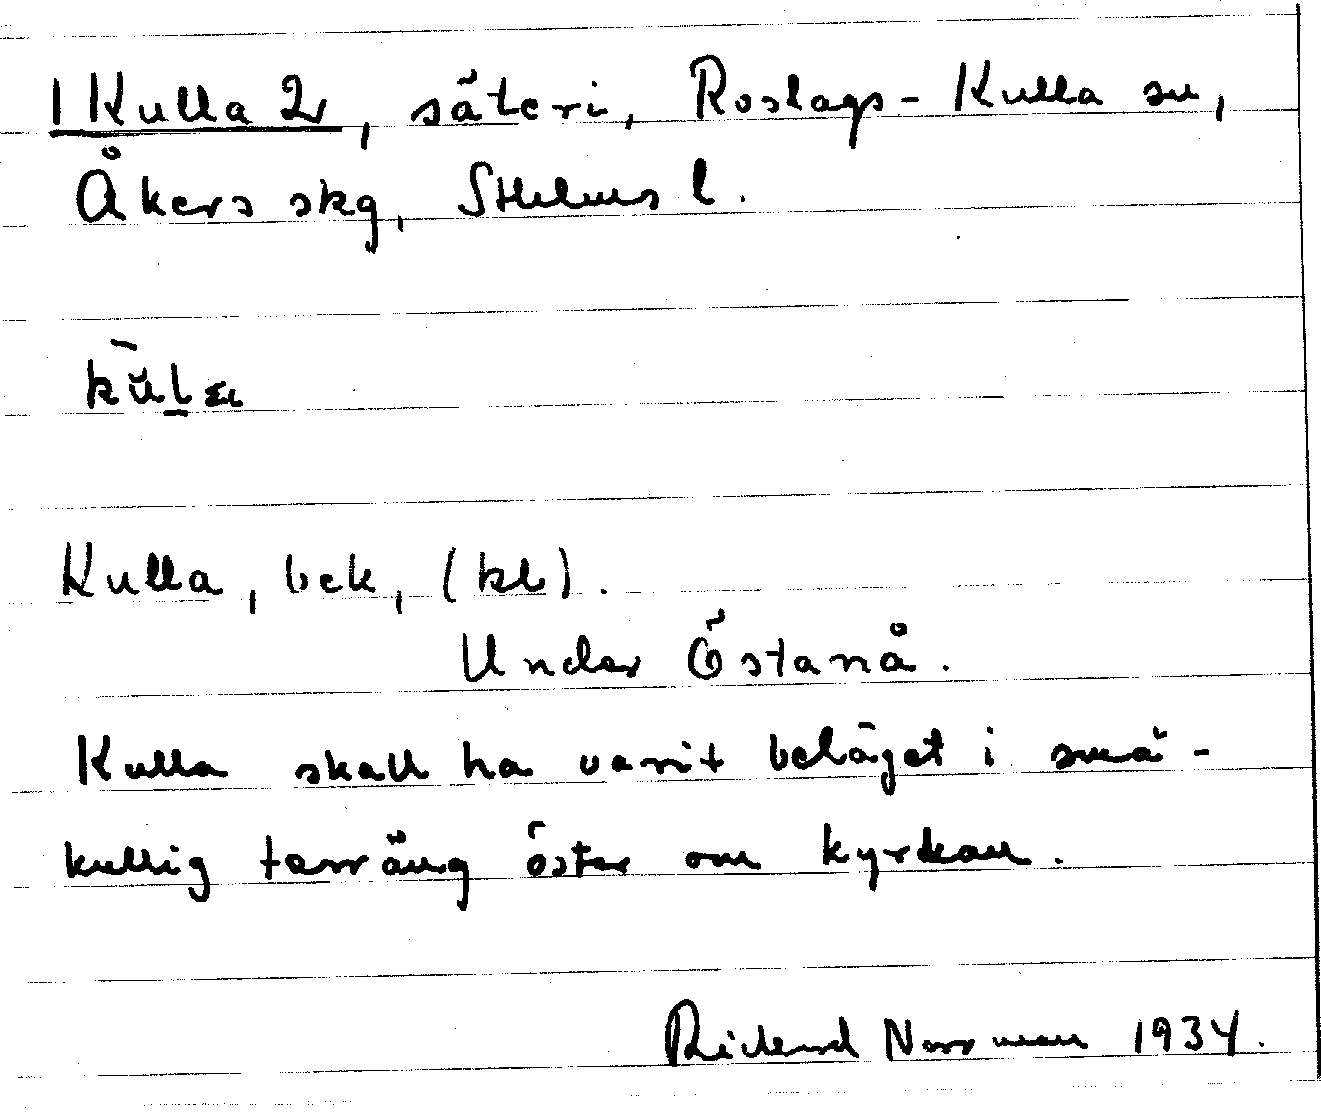 1 Kulla 2, säteri, Roslags-Kulla sn,
Åkers skg, Sthlms l.
Kulla, bek, (kl).
Under Östanå.
Kulla skall ha varit beläget i små-
kullig terräng öster om kyrkan.
Rickard Norrman 1934.